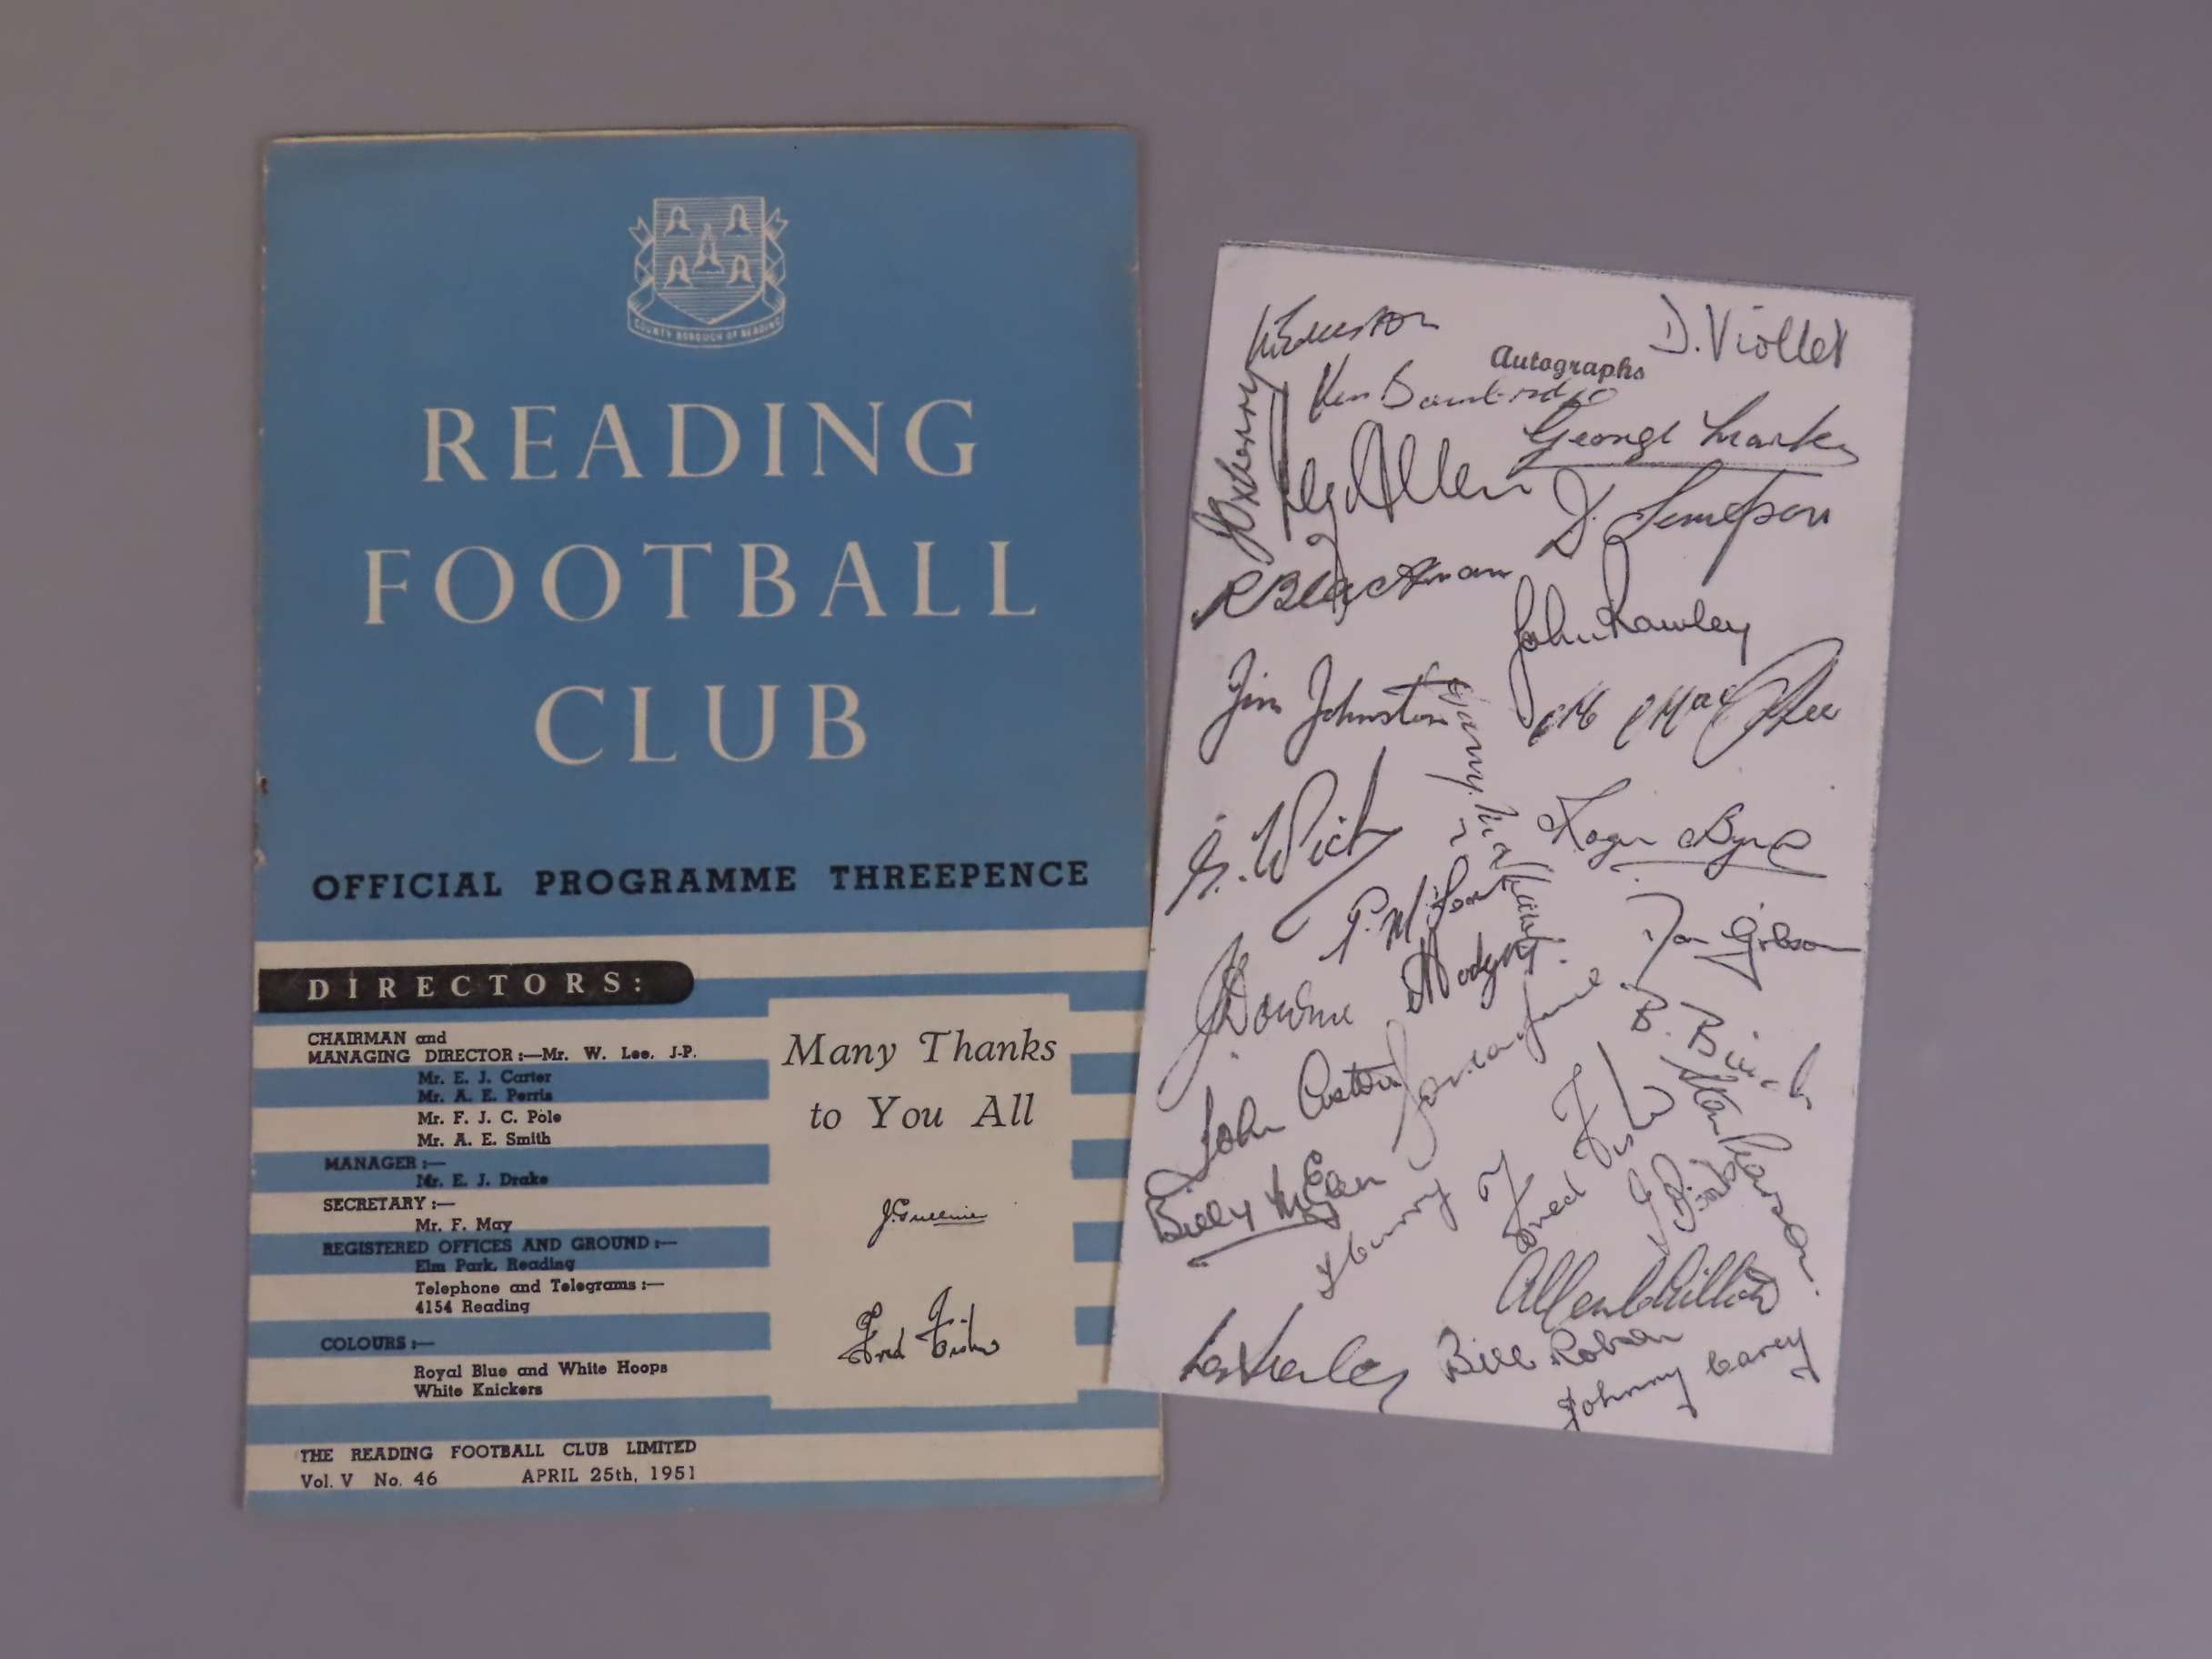 COUNTY BOROUGH OF READING
READING
FOOTBALL
CLUB
OFFICIAL PROGRAMME THREEPENCE
DIRECTORS:
CHAIRMAN and
MANAGING DIRECTOR :—Mr. W. Lee, J.P.
Mr. E. J. Carter
Mr. A. E. Perris
Mr. F. J. C. Pole
Mr. A. E. Smith
MANAGER :—
Mr. E. J. Drake
SECRETARY :—
Mr. F. May
REGISTERED OFFICES AND GROUND :—
Elm Park, Reading
Telephone and Telegrams :—
4154 Reading
COLOURS :—
Royal Blue and White Hoops
White Knickers
THE READING FOOTBALL CLUB LIMITED
Vol. V No. 46 APRIL 25th, 1951
Many Thanks
to You All
Fred Fisher
D. Viollet
Autographs
George Marks
Reg Allen
R Blackman
John Rowley
Jim Johnston
Roger Byrne
Don Gibson
J Downie
B. Birch
John Aston
Stan Pearson
Billy McGlen
Fred Fisher
Allenby Chilton
Bill Robson
Johnny Carey